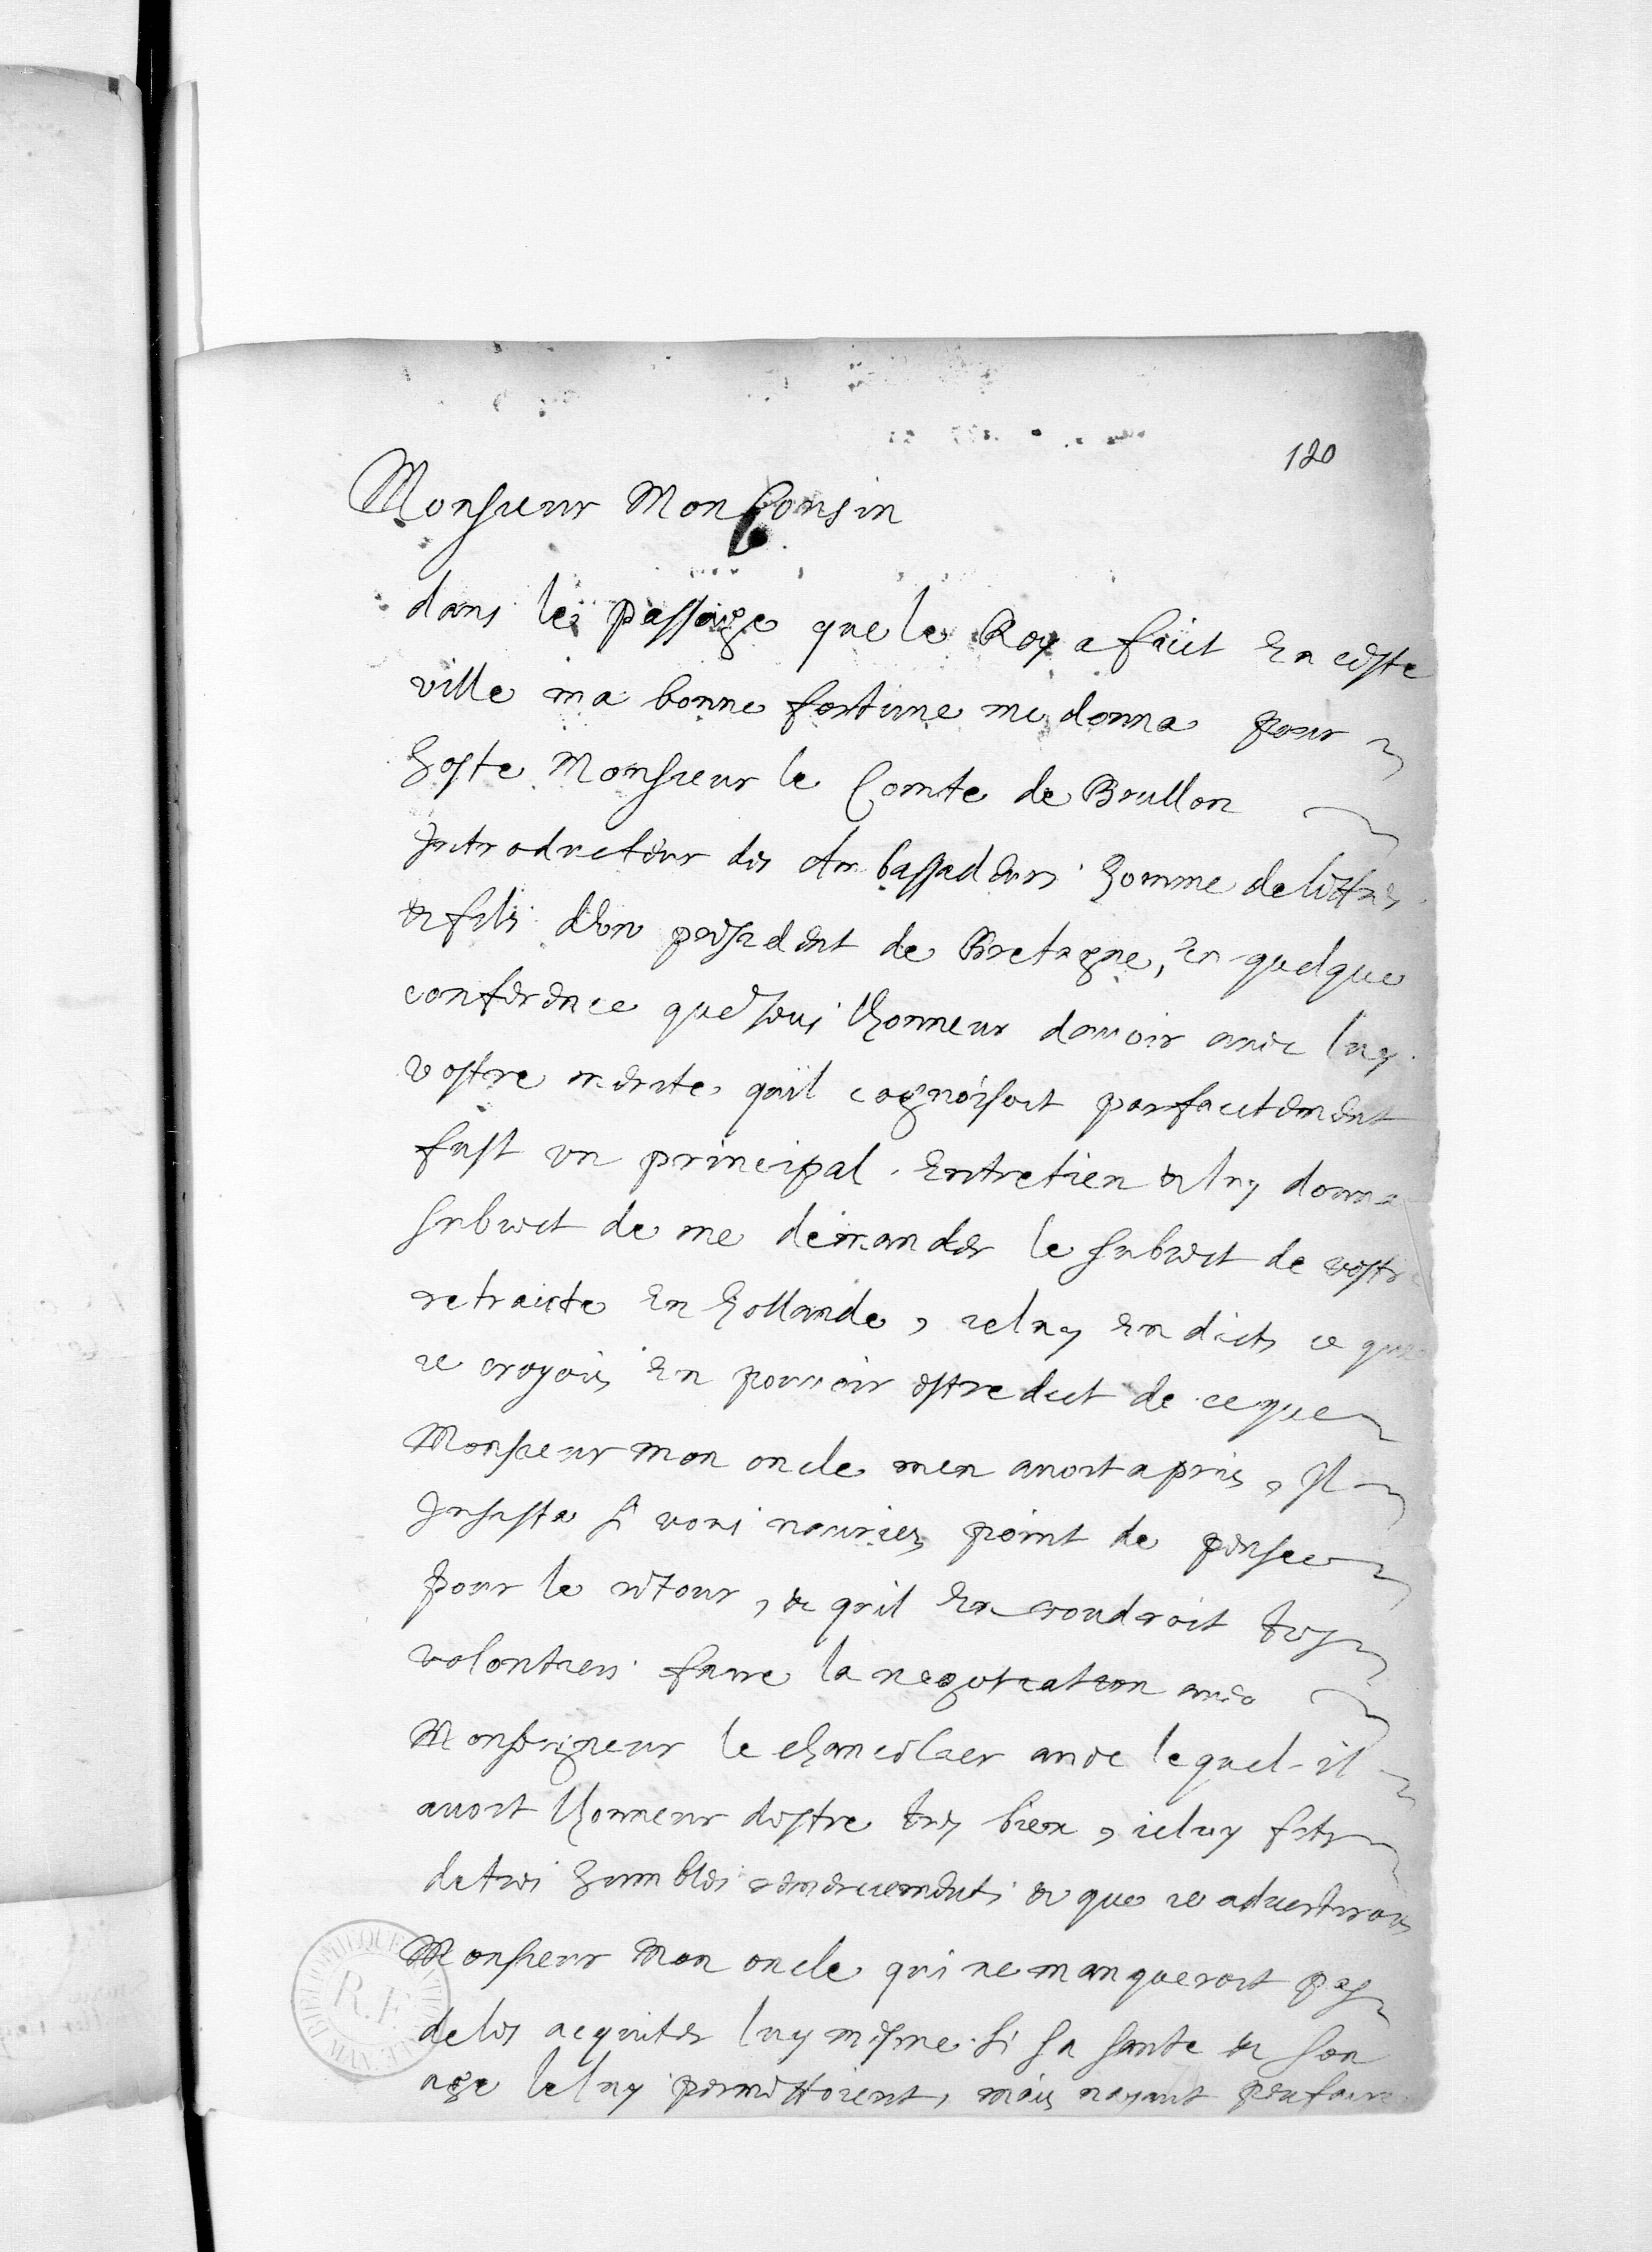 120
Monsieur Mon Cousin
dans le passage que le Roy a faict en ceste
ville ma bonne fortune me donna pour
hoste Monsieur le Comte de Brullon
Introducteur des Ambassadeurs homme de lettres
& fils d'un president de Bretagne, en quelque
conference que ieus lhonneur dauoir auec luy
vostre merite quil cognoissoit parfaictement
fust vn principal entretien & luy donna
subiect de me demander le subiect de vostre
retraicte en hollande, ie luy en dicts ce que
ie croyois en pouuoir estre dict de ce que
Monsieur mon oncle men auoit apris, Il
Insista si vous nauriez point de pensee
pour le retour, & qu'il en voudroit tres
volontiers faire la negotiation auec
Monseigneur le chancelier auec lequel il
auoit lhonneur destre tres bien, ie luy fits
de tres humbles remerciements & que ie aduertirois
Monsieur Mon oncle qui ne manqueroit pas
de les acquiter luy mesme si sa sante & son
age le luy permettoient, mais nayant peu faire
BIBLIOTHEQUE NATIONALE
R.F.